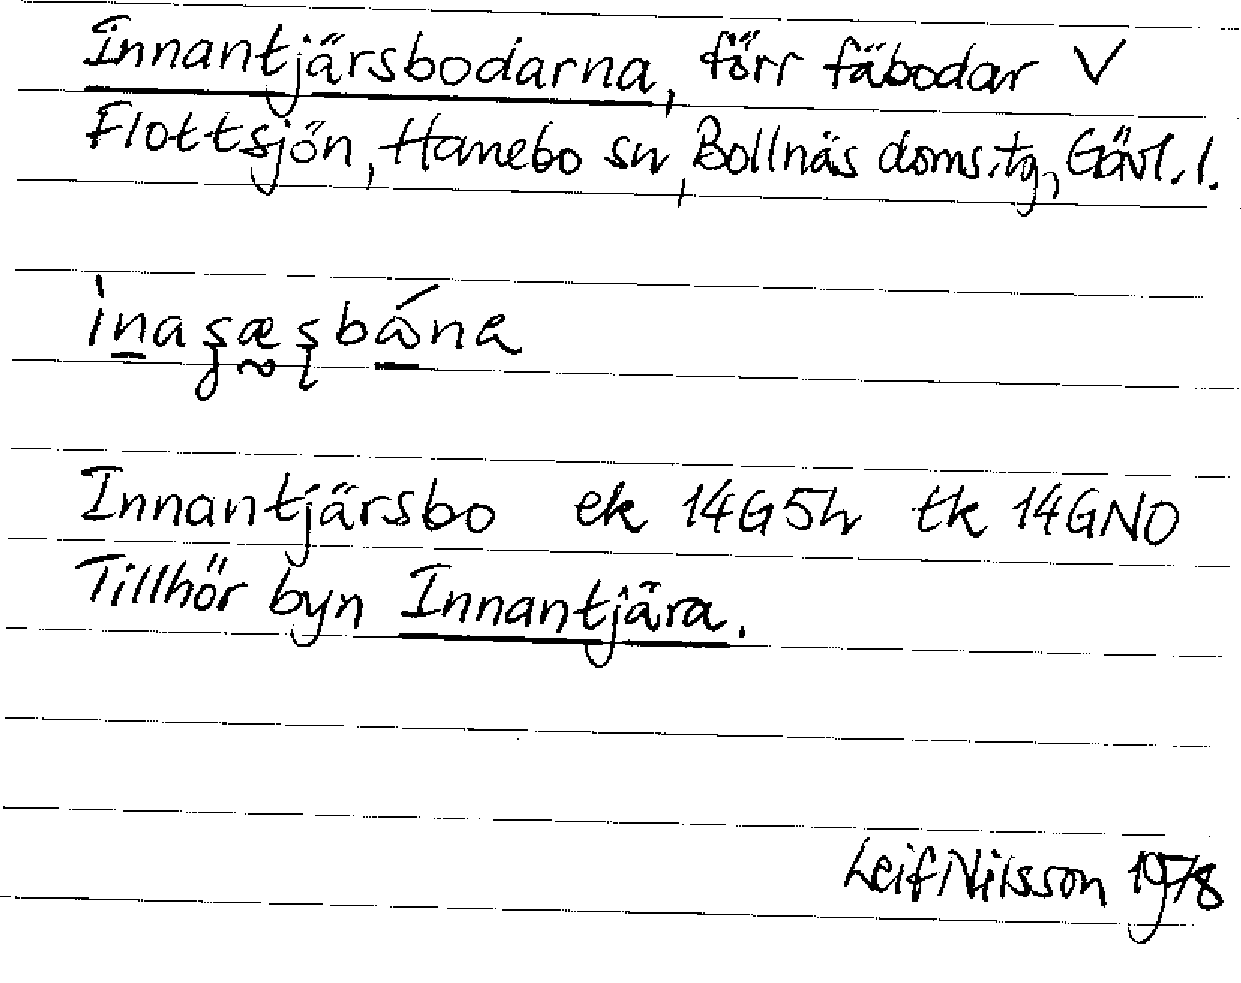 Innantjärsbodarna, förr fäbodar V
Flottsjön, Hanebo sn, Bollnäs doms.tg, Gävl.l.
Innantjärsbo ek 14G5h tk 14GNO
Tillhör byn Innantjära.
Leif Nilsson 1978